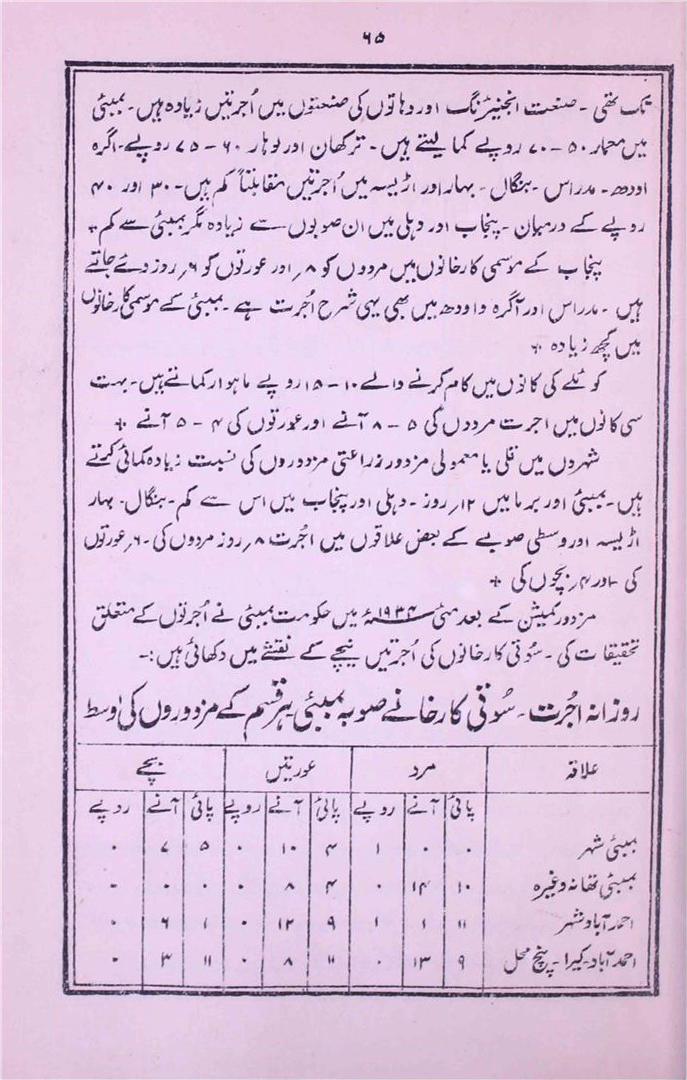 ۶۵
تک تھی ۔ صنعت انجنیئرنگ اور دہاتوں کی صنعتوں میں اُجرتیں زیادہ ہیں۔ بمبئی
میں معمار ۵۰ - ۷۰ روپے کما لیتے ہیں۔ ترکھان اور لوہار ۶۰ - ۷۵ روپے۔ اگرہ
اودھ۔ مدراس ۔بنگال ۔ بہار اور اڑیسہ میں اُجرتیں مقابلتاً کم ہیں۔ ۳۰ اور ۴۰
روپے کے درمیان ۔ پنجاب اور دہلی میں ان صوبوں سے زیادہ مگر بمبئی سے کم +
پنجاب کے موسمی کارخانوں میں مردوں کو ۸؍ اور عورتوں کو ۶؍ روز دئے جاتے
ہیں ۔ مدراس اور آگرہ و اودھ میں بھی یہی شرح اُجرت ہے ۔ بمبئی کے موسمی کارخانوں
میں کچھ زیادہ +
کوئلے کی کانوں میں کام کرنے والے ۱۰ - ۱۵ روپے ماہوار کماتے ہیں۔ بہت
سی کانوں میں اجرت مردوں کی ۵ - ۸ آنے اور عورتوں کی ۴ - ۵ آنے +
شہروں میں قلی یا معمولی مزدور زراعتی مزدوروں کی نسبت زیادہ کمائی کرتے
ہیں۔ بمبئی اور برما میں ۱۲؍ روز ۔ دہلی اور پنجاب میں اس سے کم ۔ بنگال۔ بہار
اڑیسہ اور وسطی صوبے کے بعض علاقوں میں اُجرت ۸؍ روز مردوں کی ۔ ۶؍ عورتوں
کی ۔ اور ۴؍ بچوں کی +
مزدور کمیشن کے بعد مئی ۱۹۳۴ء میں حکومت بمبئی نے اُجرتوں کے متعلق
تحقیقات کی ۔ سُوتی کارخانوں کی اُجرتیں نیچے کے نقشے میں دکھائی ہیں :-
روزانہ اجرت ۔ سُوتی کارخانے صوبہ بمبئی ہر قسم کے مزدوروں کی اوسط
علاقہ مرد عورتیں بچے
پائی آنے روپے پائی آنے روپے پائی آنے روپے
بمبئی شہر ۰ ۰ ۱ ۴ ۱۰ ۰ ۵ ۷ ۰
بمبئی تھانہ وغیرہ ۱۰ ۱۴ ۰ ۴ ۸ ۰ ۰ ۰ ۰
احمد آباد شہر ۱۱ ۱ ۱ ۹ ۱۲ ۰ ۱ ۶ ۰
احمد آباد۔ کیرا ۔ پنچ محل ۹ ۱۳ ۰ ۱۱ ۸ ۰ ۱۱ ۳ ۰